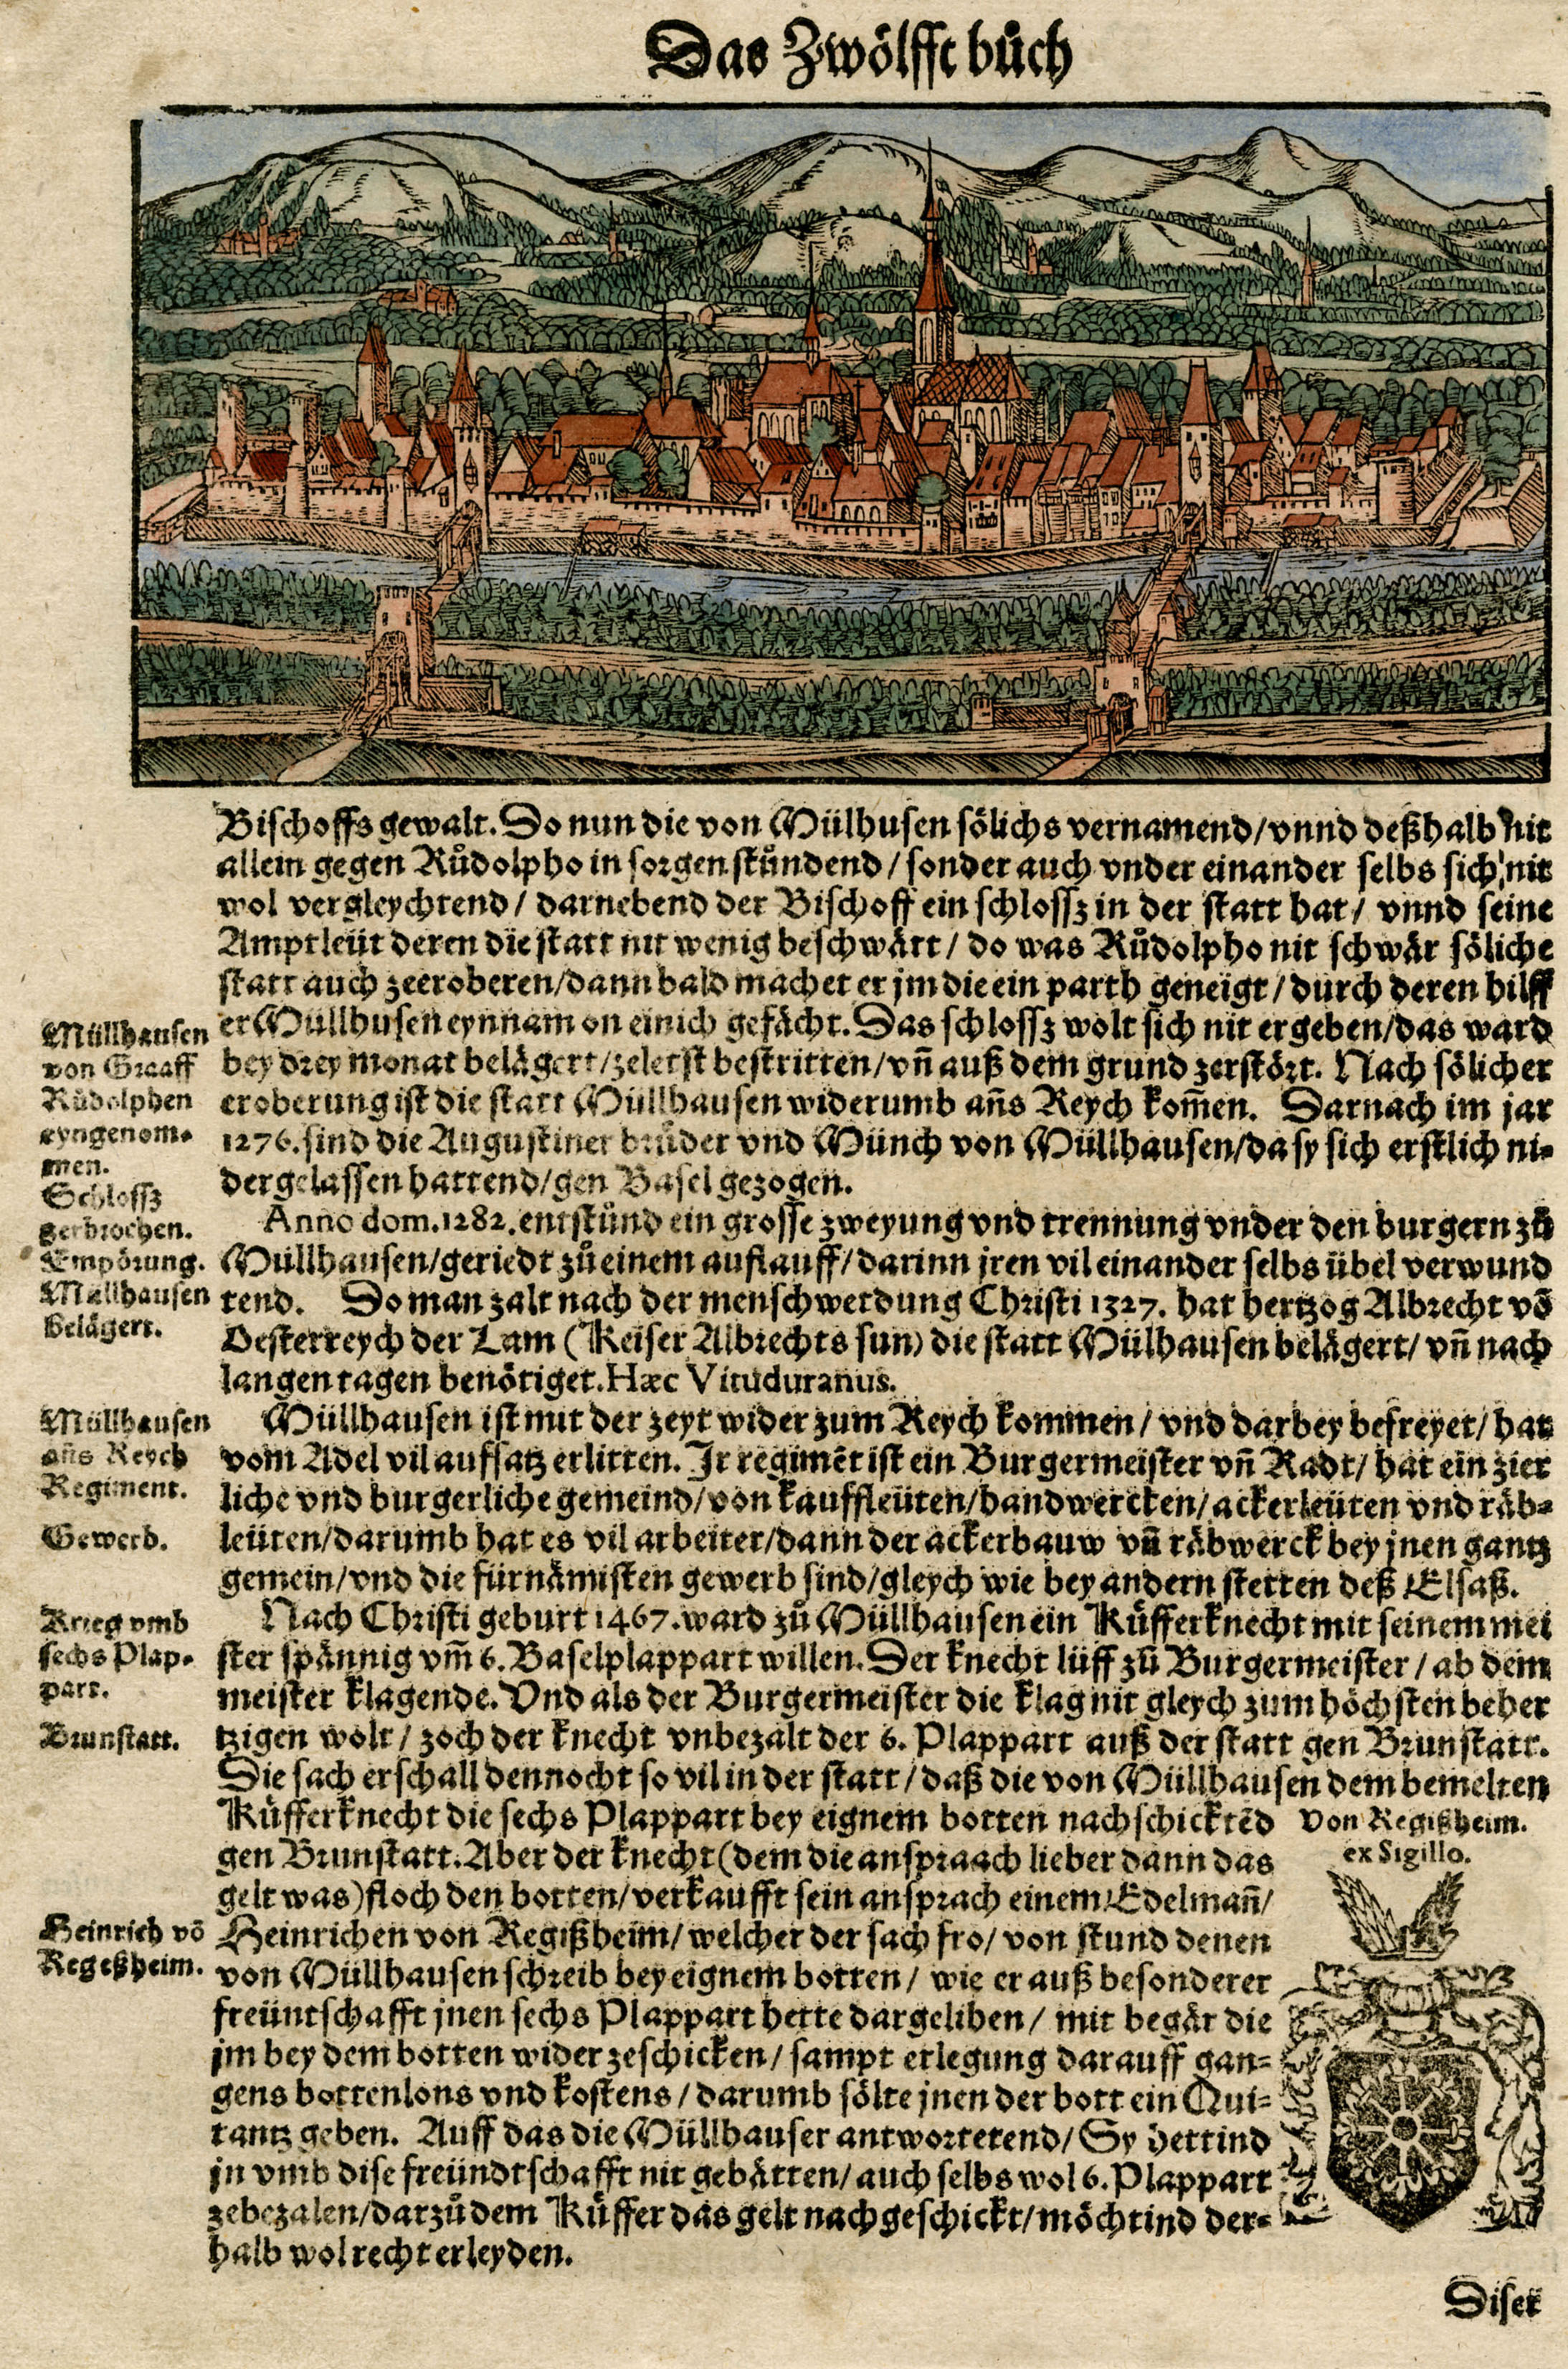 Das Zwölfft bůch
Bischoffs gewalt. Do nun die von Mülhusen sölichs vernamend/vnnd deßhalb nit
allein gegen Růdolpho in sorgen stůndend/sonder auch vnder einander selbs sich nit
wol vergleychtend/darnebend der Bischoff ein schlossz in der statt hat/vnnd seine
Amptleüt deren die statt nit wenig beschwärt/do was Růdolpho nit schwär söliche
statt auch zeeroberen/dann bald machet er jm die ein parth geneigt/durch deren hilff
er Müllhusen eynnam on einich gefächt. Das schlossz wolt sich nit ergeben/das ward
bey drey monat belägert/zeletst bestritten/vñ auß dem grund zerstört. Nach sölicher
eroberung ist die statt Müllhausen widerumb añs Reych kom̃en. Darnach im jar
1276. sind die Augustiner brůder vnd Münch von Müllhausen/da sy sich erstlich ni-
dergelassen hattend/gen Basel gezogen.
Anno dom. 1282. entstůnd ein grosse zweyung vnd trennung vnder den burgern zů
Müllhausen/geriedt zů einem aufflauff/darinn jren vil einander selbs übel verwund
tend. Do man zalt nach der menschwerdung Christi 1327. hat hertzog Albrecht võ
Oesterreych der Lam (Keiser Albrechts sun) die statt Mülhausen belägert/vñ nach
langen tagen benötiget. Hæc Vituduranus.
Müllhausen ist mit der zeyt wider zum Reych kommen/vnd darbey befreyet/hat
vom Adel vil auffsatz erlitten. Ir regimẽt ist ein Burgermeister vñ Radt/hat ein zier
liche vnd burgerliche gemeind/von kauffleüten/handwercken/ackerleüten vnd räb-
leüten/darumb hat es vil arbeiter/dann der ackerbauw vñ räbwerck bey jnen gantz
gemein/vnd die fürnämisten gewerb sind/gleych wie bey andern stetten deß Elsaß.
Nach Christi geburt 1467. ward zů Müllhausen ein Küfferknecht mit seinem mei
ster spännig vm̃ 6. Baselplappart willen. Der knecht lüff zů Burgermeister/ab dem
meister klagende. Vnd als der Burgermeister die klag nit gleych zum höchsten beher
tzigen wolt/zoch der knecht vnbezalt der 6. Plappart auß der statt gen Brunstatt.
Die sach erschall dennocht so vil in der statt/daß die von Müllhausen dem bemelten
Küfferknecht die sechs Plappart bey eignem botten nachschicktẽd
gen Brunstatt. Aber der knecht (dem die anspraach lieber dann das
gelt was) floch den botten/verkaufft sein ansprach einem Edelmañ/
Heinrichen von Regißheim/welcher der sach fro/von stund denen
von Müllhausen schreib bey eignem botten/wie er auß besonderer
freüntschafft jnen sechs Plappart hette dargelihen/mit begär die
jm bey dem botten wider zeschicken/sampt erlegung darauff gan-
gens bottenlons vnd kostens/darumb sölte jnen der bott ein Qui-
tantz geben. Auff das die Müllhauser antwortetend/Sy hettind
jn vmb dise freündtschafft nit gebätten/auch selbs wol 6. Plappart
zebezalen/darzů dem Küffer das gelt nachgeschickt/möchtind der-
halb wol recht erleyden.
Müllhausen
von Graaff
Růdolphen
eyngenom-
men.
Schlossz
zerbrochen.
Empörung.
Müllhausen
belägert.
Müllhausen
añs Reych
Regiment.
Gewerb.
Krieg vmb
sechs Plap-
part.
Brunstatt.
Heinrich võ
Regeßheim.
Von Regißheim.
ex Sigillo.
Diser